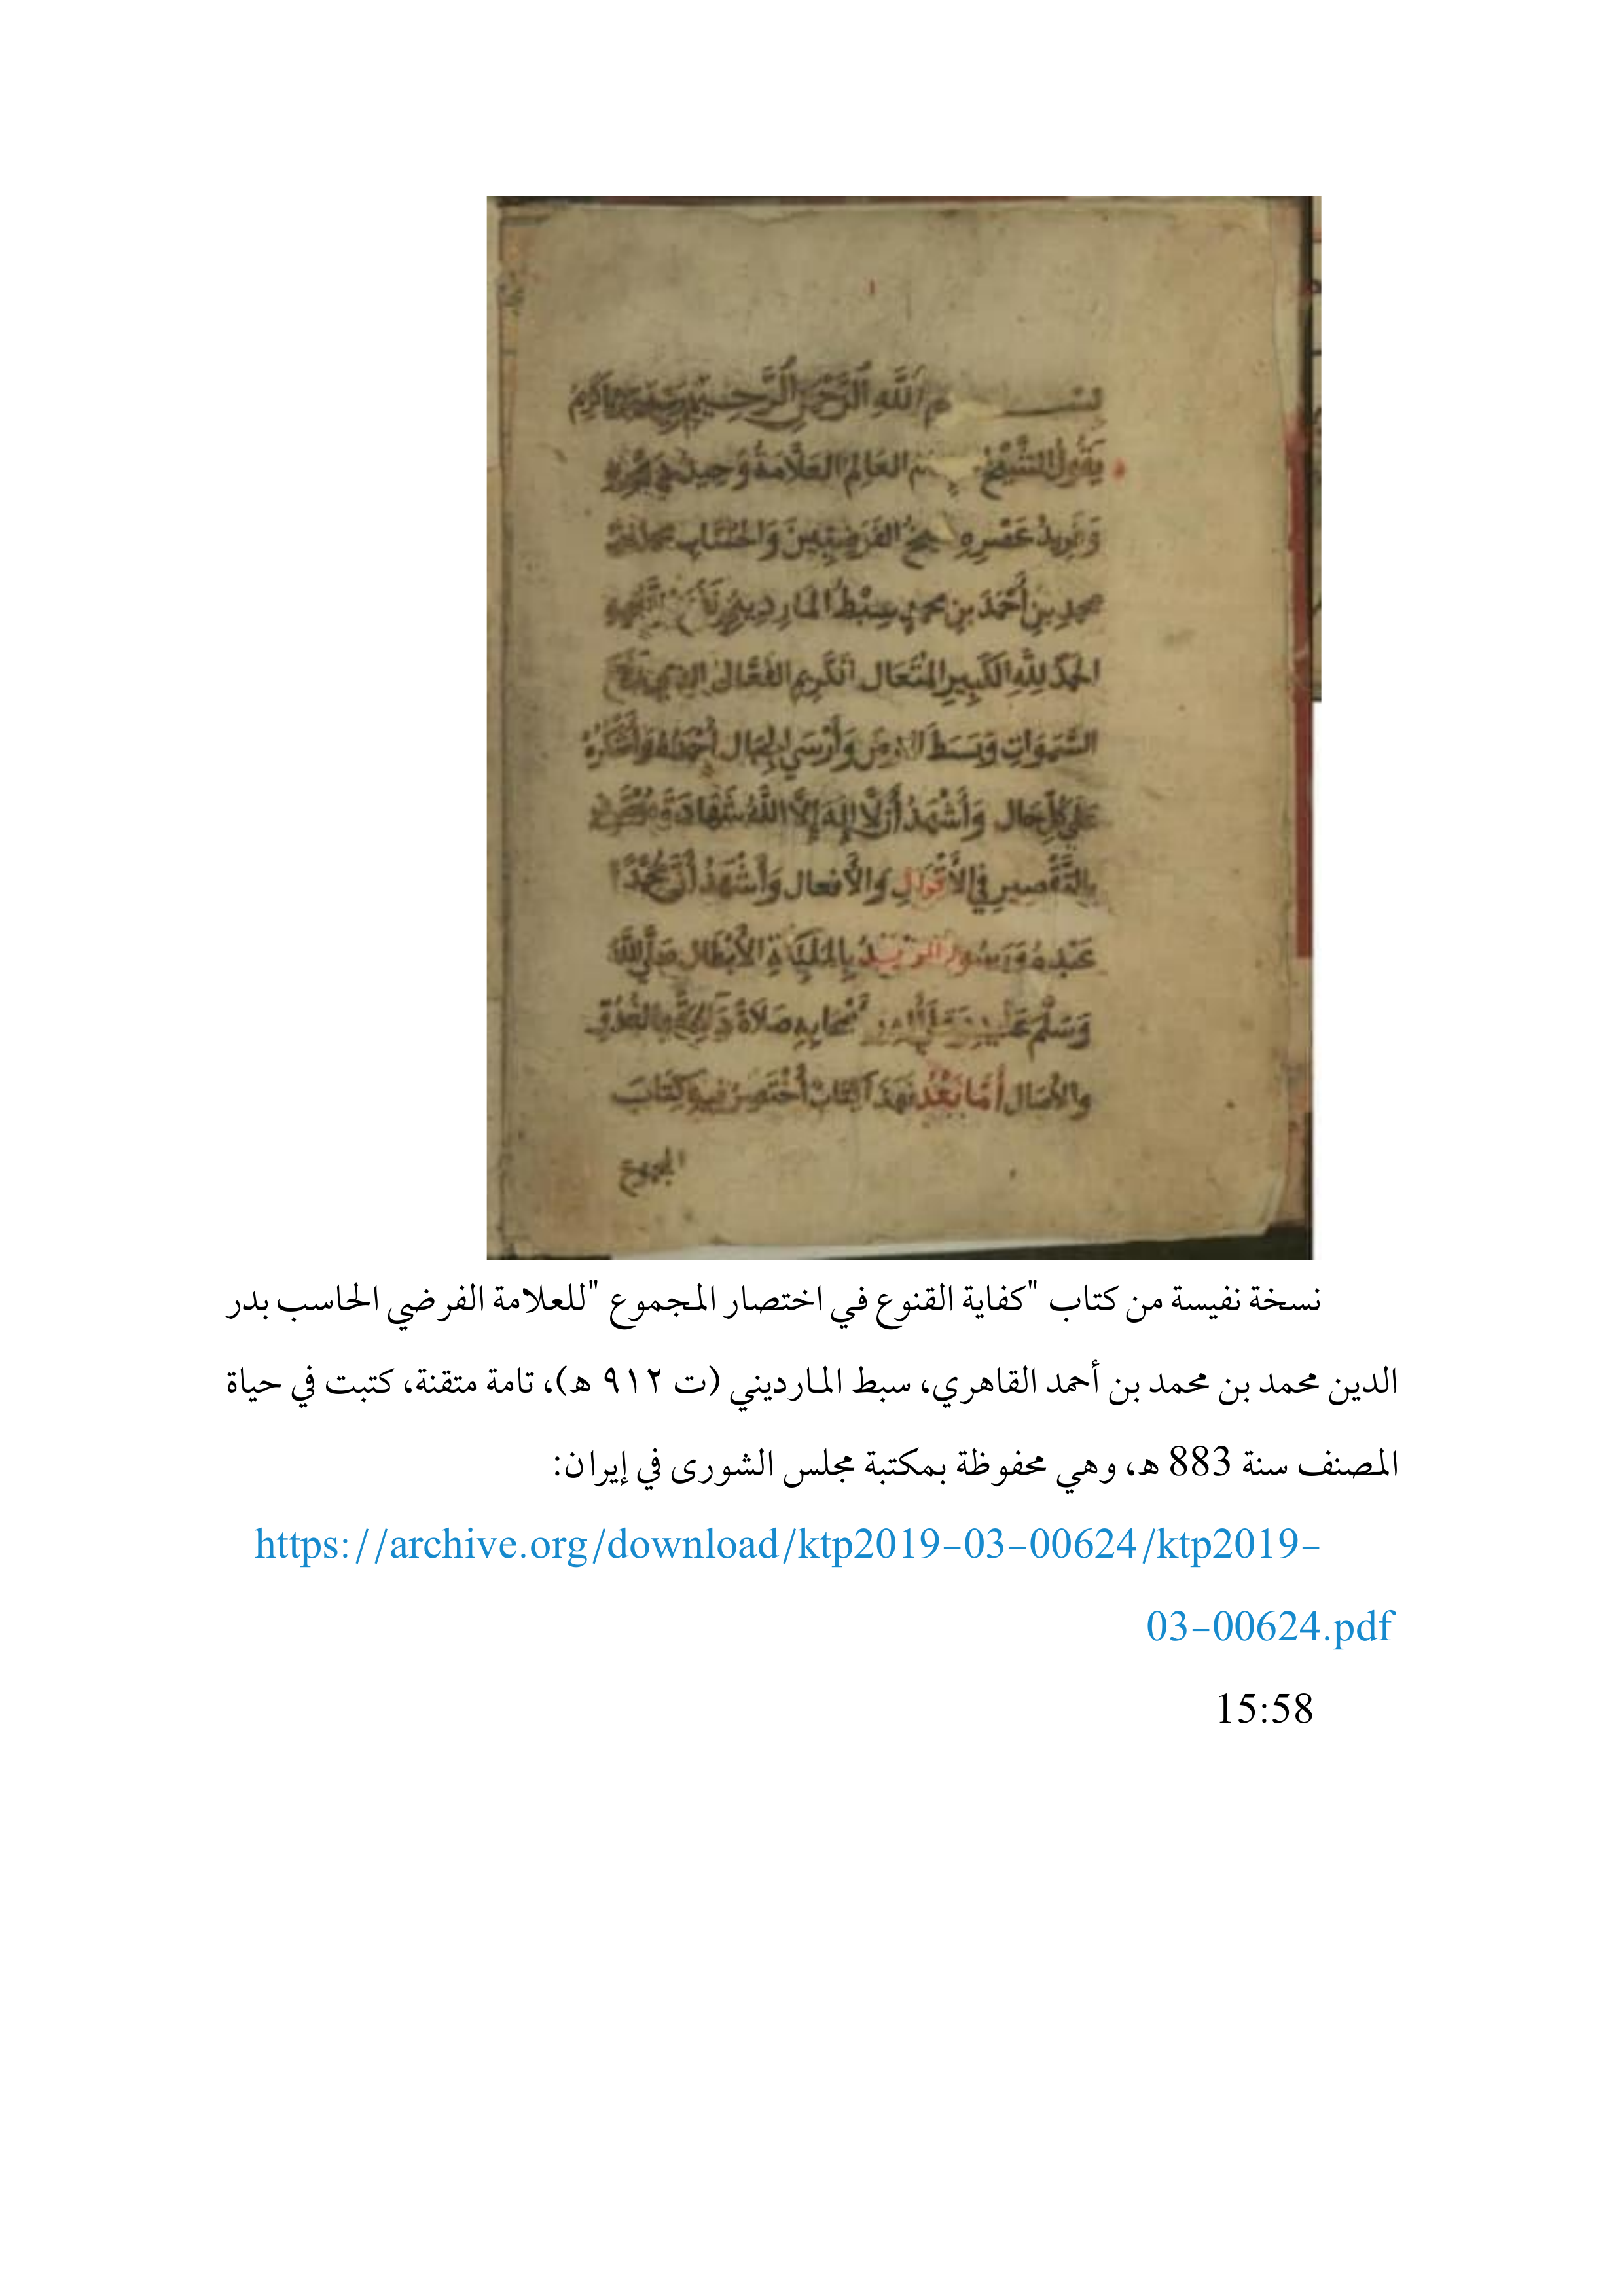 ١
بســـــــم اللَّهِ الرَّحْمَنِ الرَّحِيمِ
يَقُولُ الشَّيْخُ العَالِمُ العَلَّامَةُ وَحِيدُ
وَفَرِيدُ عَصْرِهِ الفَرَضِيِّينَ وَالحُسَّابِ
محمدِ بنِ أَحْمَدَ بنِ محمدٍ سِبْطُ المَارِدِينِي
الحَمْدُ لِلَّهِ الكَبِيرِ المُتَعَال الكَرِيمِ الفَعَّال
السَّمَوَاتِ وَبَسَطَ الأرض وَأَرْسَى الجِبَال أَحْمَدُهُ وَأَشْكُرُهُ
عَلَى كُلِّ حَال وَأَشْهَدُ أَن لَّا إِلَهَ إِلَّا اللَّهُ شَهَادَةَ
بِالتَّقْصِيرِ فِي الأَقْوَالِ وَالأَفعال وَأَشْهَدُ أَنَّ مُحَمَّدًا
عَبْدُهُ وَرَسُولُهُ المؤيَّدُ الأَبْطَال صَلَّى اللَّهُ
وَسَلَّمَ عَلَيْهِ صَلَاةً بِالغُدُوِّ
والآصَال أَمَّا بَعْدُ فَهَذَا كِتَابٌ أَخْتَصِرُ فِيهِ كِتَابَ
المجموع
نسخة نفيسة من كتاب "كفاية القنوع في اختصار المجموع "للعلامة الفرضي الحاسب بدر
الدين محمد بن محمد بن أحمد القاهري، سبط المارديني (ت ٩١٢ ه)، تامة متقنة، كتبت في حياة
المصنف سنة 883 ه، وهي محفوظة بمكتبة مجلس الشورى في إيران:
https://archive.org/download/ktp2019-03-00624/ktp2019-
03-00624.pdf
15:58